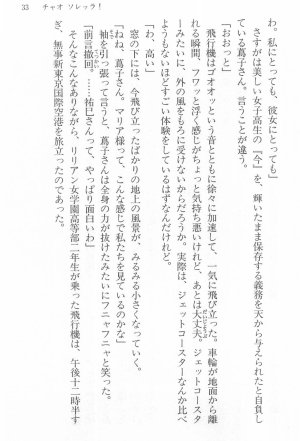 33　チャオ ソレッラ！
わ。私にとっても、彼女にとっても」
さすがは美しい女子高生の『今』を、輝いたまま保存する義務を天から与えられたと自負し
ている蔦子さん。言うことが違う。
「おおっと」
飛行機はゴオオッという音とともに徐々に加速して、一気に飛び立った。車輪が地面から離
れる瞬間、フワッと浮く感じがちょっと気持ち悪いけれど、あとは大丈夫。ジェットコースタ
ーみたいに、外の風をもろに受けないからだろうか。実際は、ジェットコースターなんか比べ
ものにならないほどすごい体験をしているはずなんだけれど。
「わ、高い」
窓の下には、今飛び立ったばかりの地上の風景が、みるみる小さくなっていく。
「ねね、蔦子さん。マリア様って、こんな感じで私たちを見ているのかな」
袖を引っ張って言うと、蔦子さんは全身の力が抜けたみたいにフニャフニャと笑った。
「前言撤回。……祐巳さんって、やっぱり面白いわ」
そんなこんなありながら、リリアン女学園高等部二年生が乗った飛行機は、午後十二時半す
ぎ、無事新東京国際空港を旅立ったのであった。